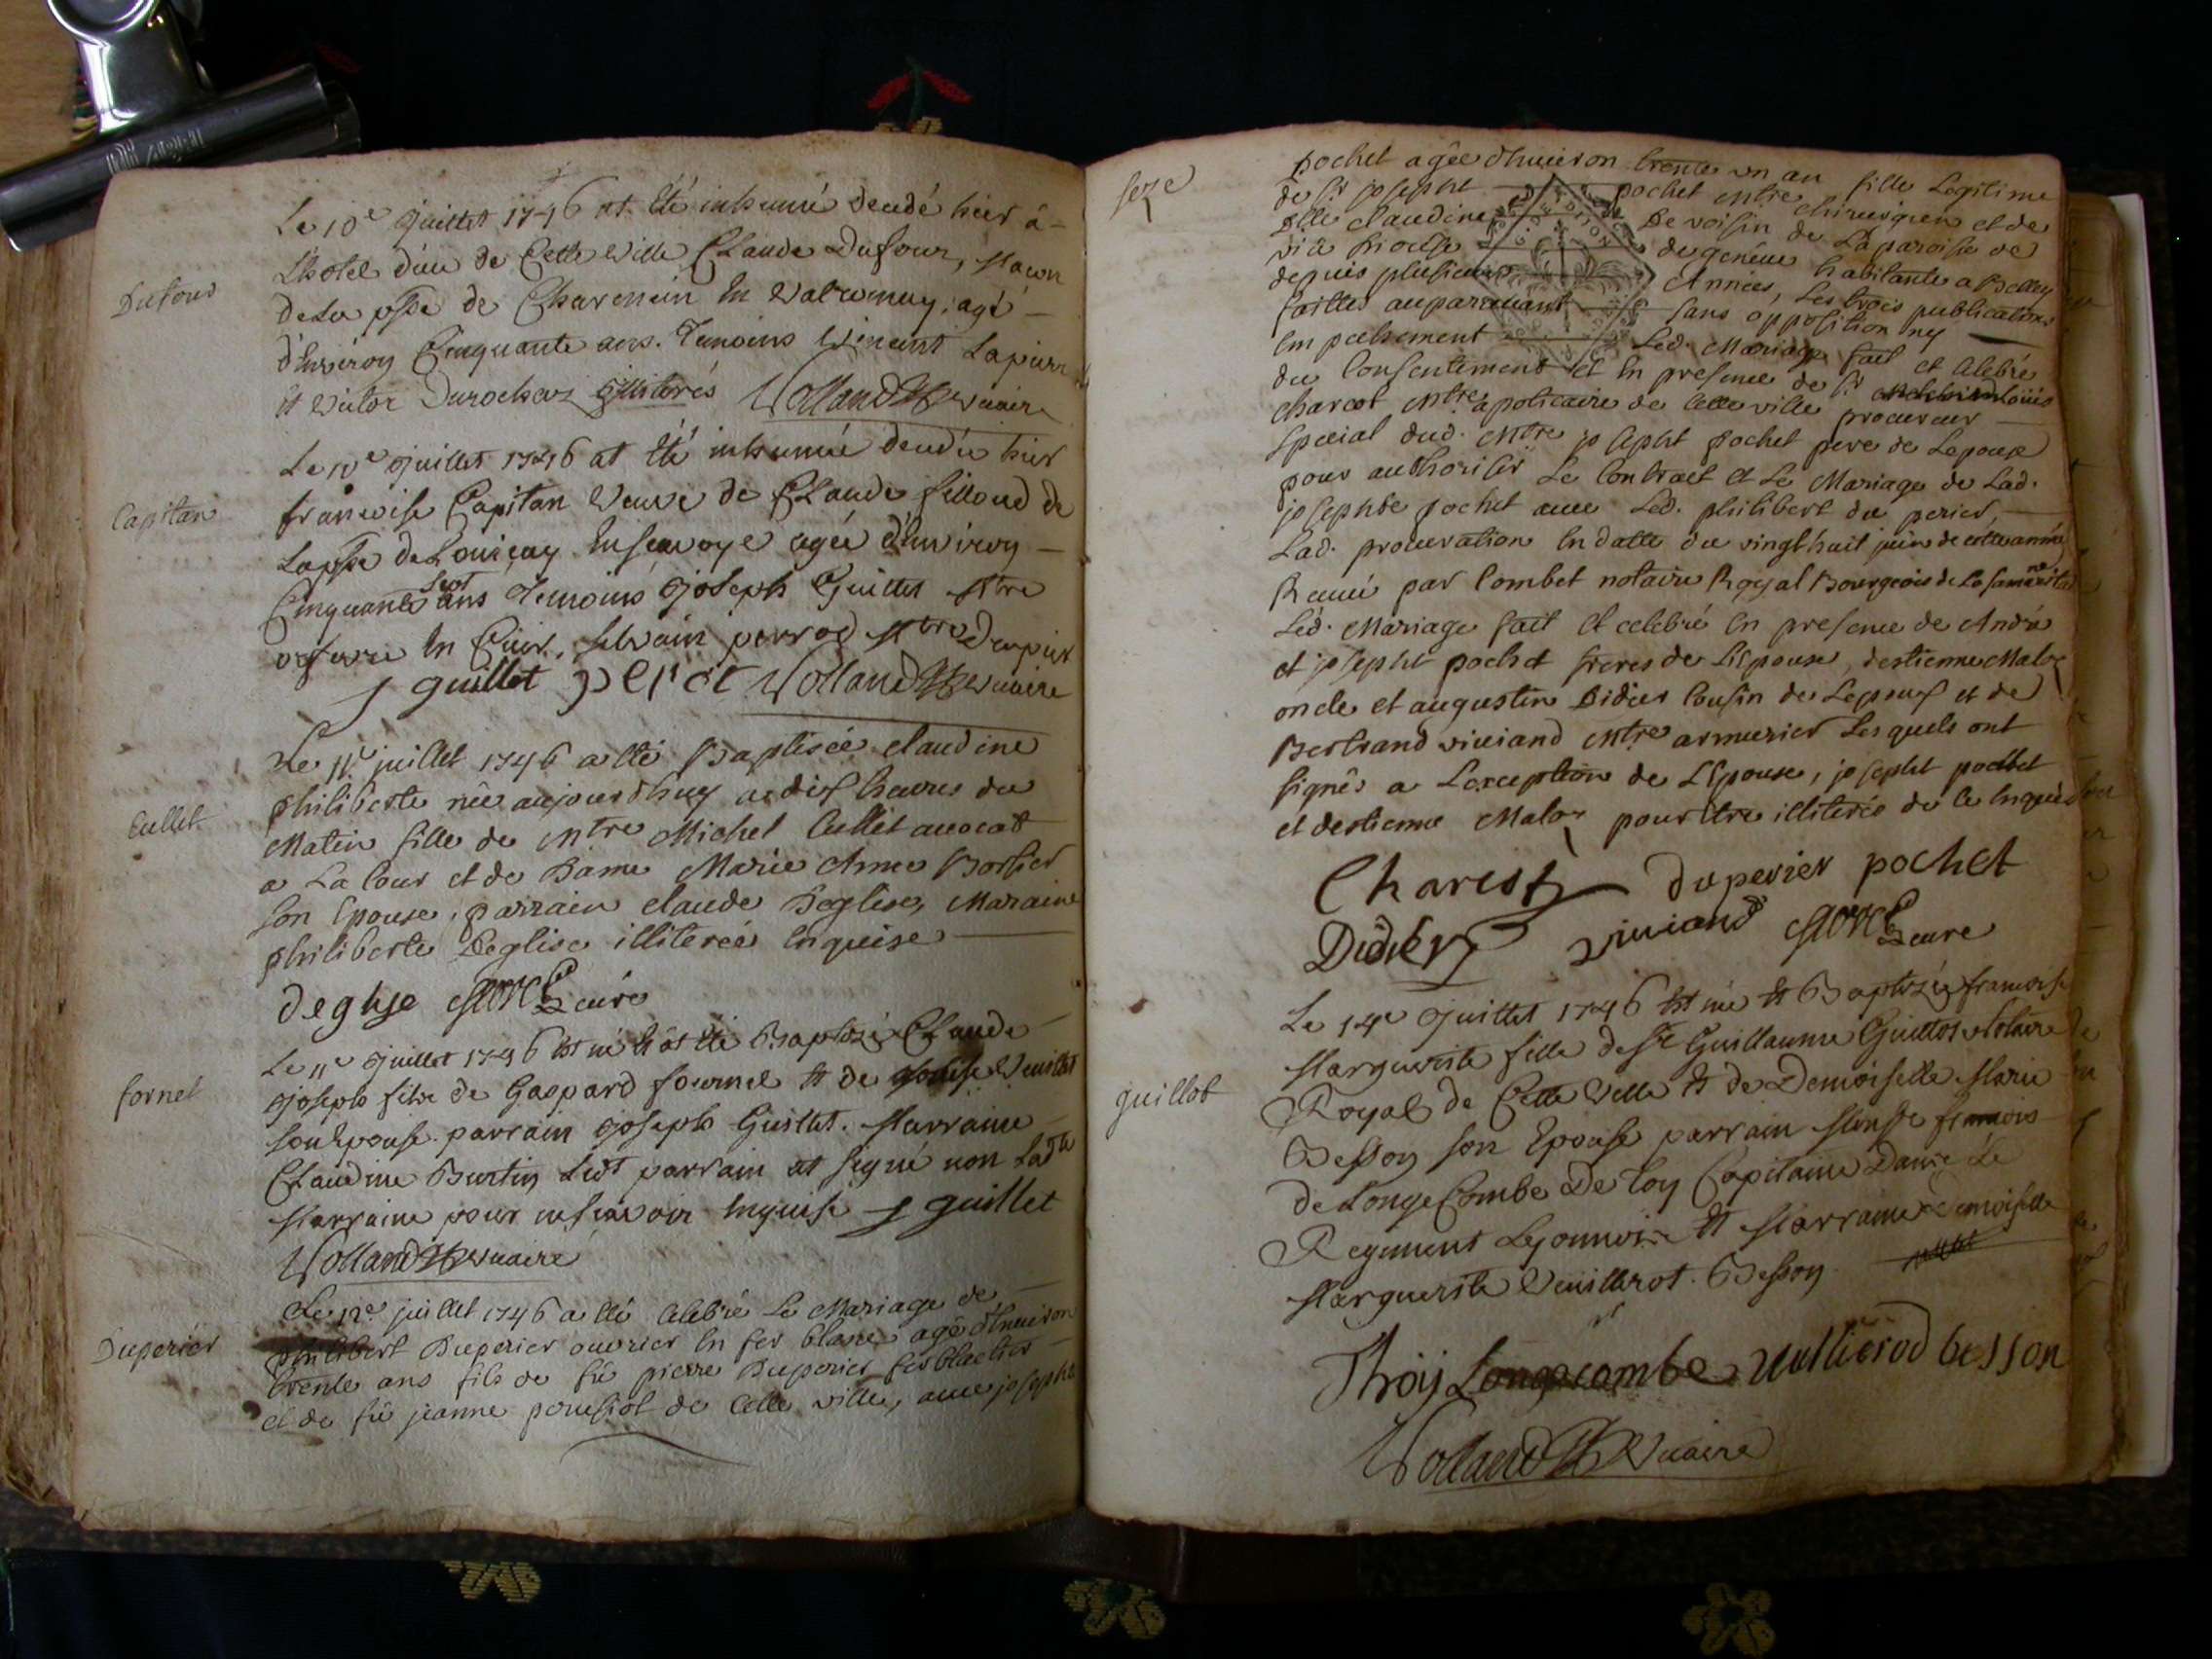 Dufour
Le 10e Juillet 1746 at été inhumé decedé hier à
L'hotel dieu de Cette Ville Claude Dufour, Macon
de La psse de Charencin En Valromey, agé
d'Environ Cinquante ans. Temoins Vincent Lapierre
et Victor Durochat illiterés Volland Vicaire
Capitan
Le 10e Juillet 1746 at été inhumée decedée hier
francoise Capitan Veuve de Claude filloud de
La psse de En savoye agée d'Environ
Cinquante sept ans Temoins Joseph Guillet Mtre
orfevre En Cuivre, Silvain perrod Mtre
J guillet perot Volland Vicaire
Cullet
Le 11e juillet 1746 a été Baptisée claudine
philiberte née aujourdhuy a dix heures du
Matin fille de Mtre Michel Cullet avocat
a La Cour et de Dame Marie Anne
son Epouse, parrain claude Deglise, Maraine
philiberte Deglise illiterée Enquise
deglise curé
fornel
Le 11e Juillet 1746 Est né Et at été Baptizé Claude
Joseph fils de Gaspard fournel Et de
son Epouse. parrain Joseph Guillet. Marraine
Claudine Burtin Ledt parrain at signé non Ladte
Marraine pour ne scavoir Enquise J guillet
Volland Vicaire
Duperier
Le 12e juillet 1746 a été Celebré Le Mariage de
philibert Duperier ouvrier En fer blanc agé d'Environ
trente ans fils de fû pierre Duperier ferblantier
et de fû jeanne de Cette ville, avec josephte
seze
pochet agée d'Environ trente un an fille Legitime
de Sr josepht pochet Mtre chirurgien et de
Dlle claudine De voisin de La paroisse de
vi û Diocese de geneve habitante a Belley
depuis plusieurs Années, Les trois publications
faittes auparavant sans opposition ny
Empechement Led. Mariage fait et celebré
du Consentement et En presence de Sr Louïs
charcot Mtre apoticaire de Cette ville procureur
special dud. Mtre josepht pochet pere de Lepouse
pour authoriser Le Contract et Le Mariage de Lad.
josephte pochet avec Led. philibert du perier,
Lad. procuration En datte du vingt huit juin de cette année
Receue par Combet notaire Royal Bourgeois de
Led. Mariage fait et celebré En presence de André
et josepht pochet freres de L'Epouse, destienne Maloz
oncle et augustin Didier Cousin de Lepoux et de
Bertrand viviand Mtre armurier Lesquels ont
signés a Lexception de L'Epouse, josepht pochet
et destienne Maloz pour être illiterés de ce Enquis
Charcot duperier pochet
Didier viviand curé
guillot
Le 14e Juillet 1746 Est née Et Baptizée francoise
Marguerite fille de Sr Guillaume Guillot Notaire
Royal de Cette Ville Et de Demoiselle Marie
Besson son Epouse parrain Monsr francois
de Longecombe De Toy Capitaine Dans Le
Regiment Lyonnois Et Marraine Demoiselle
Marguerite Vuillerot. Besson
Thoÿ Longecombe Vulliérod besson
Volland Vicaire